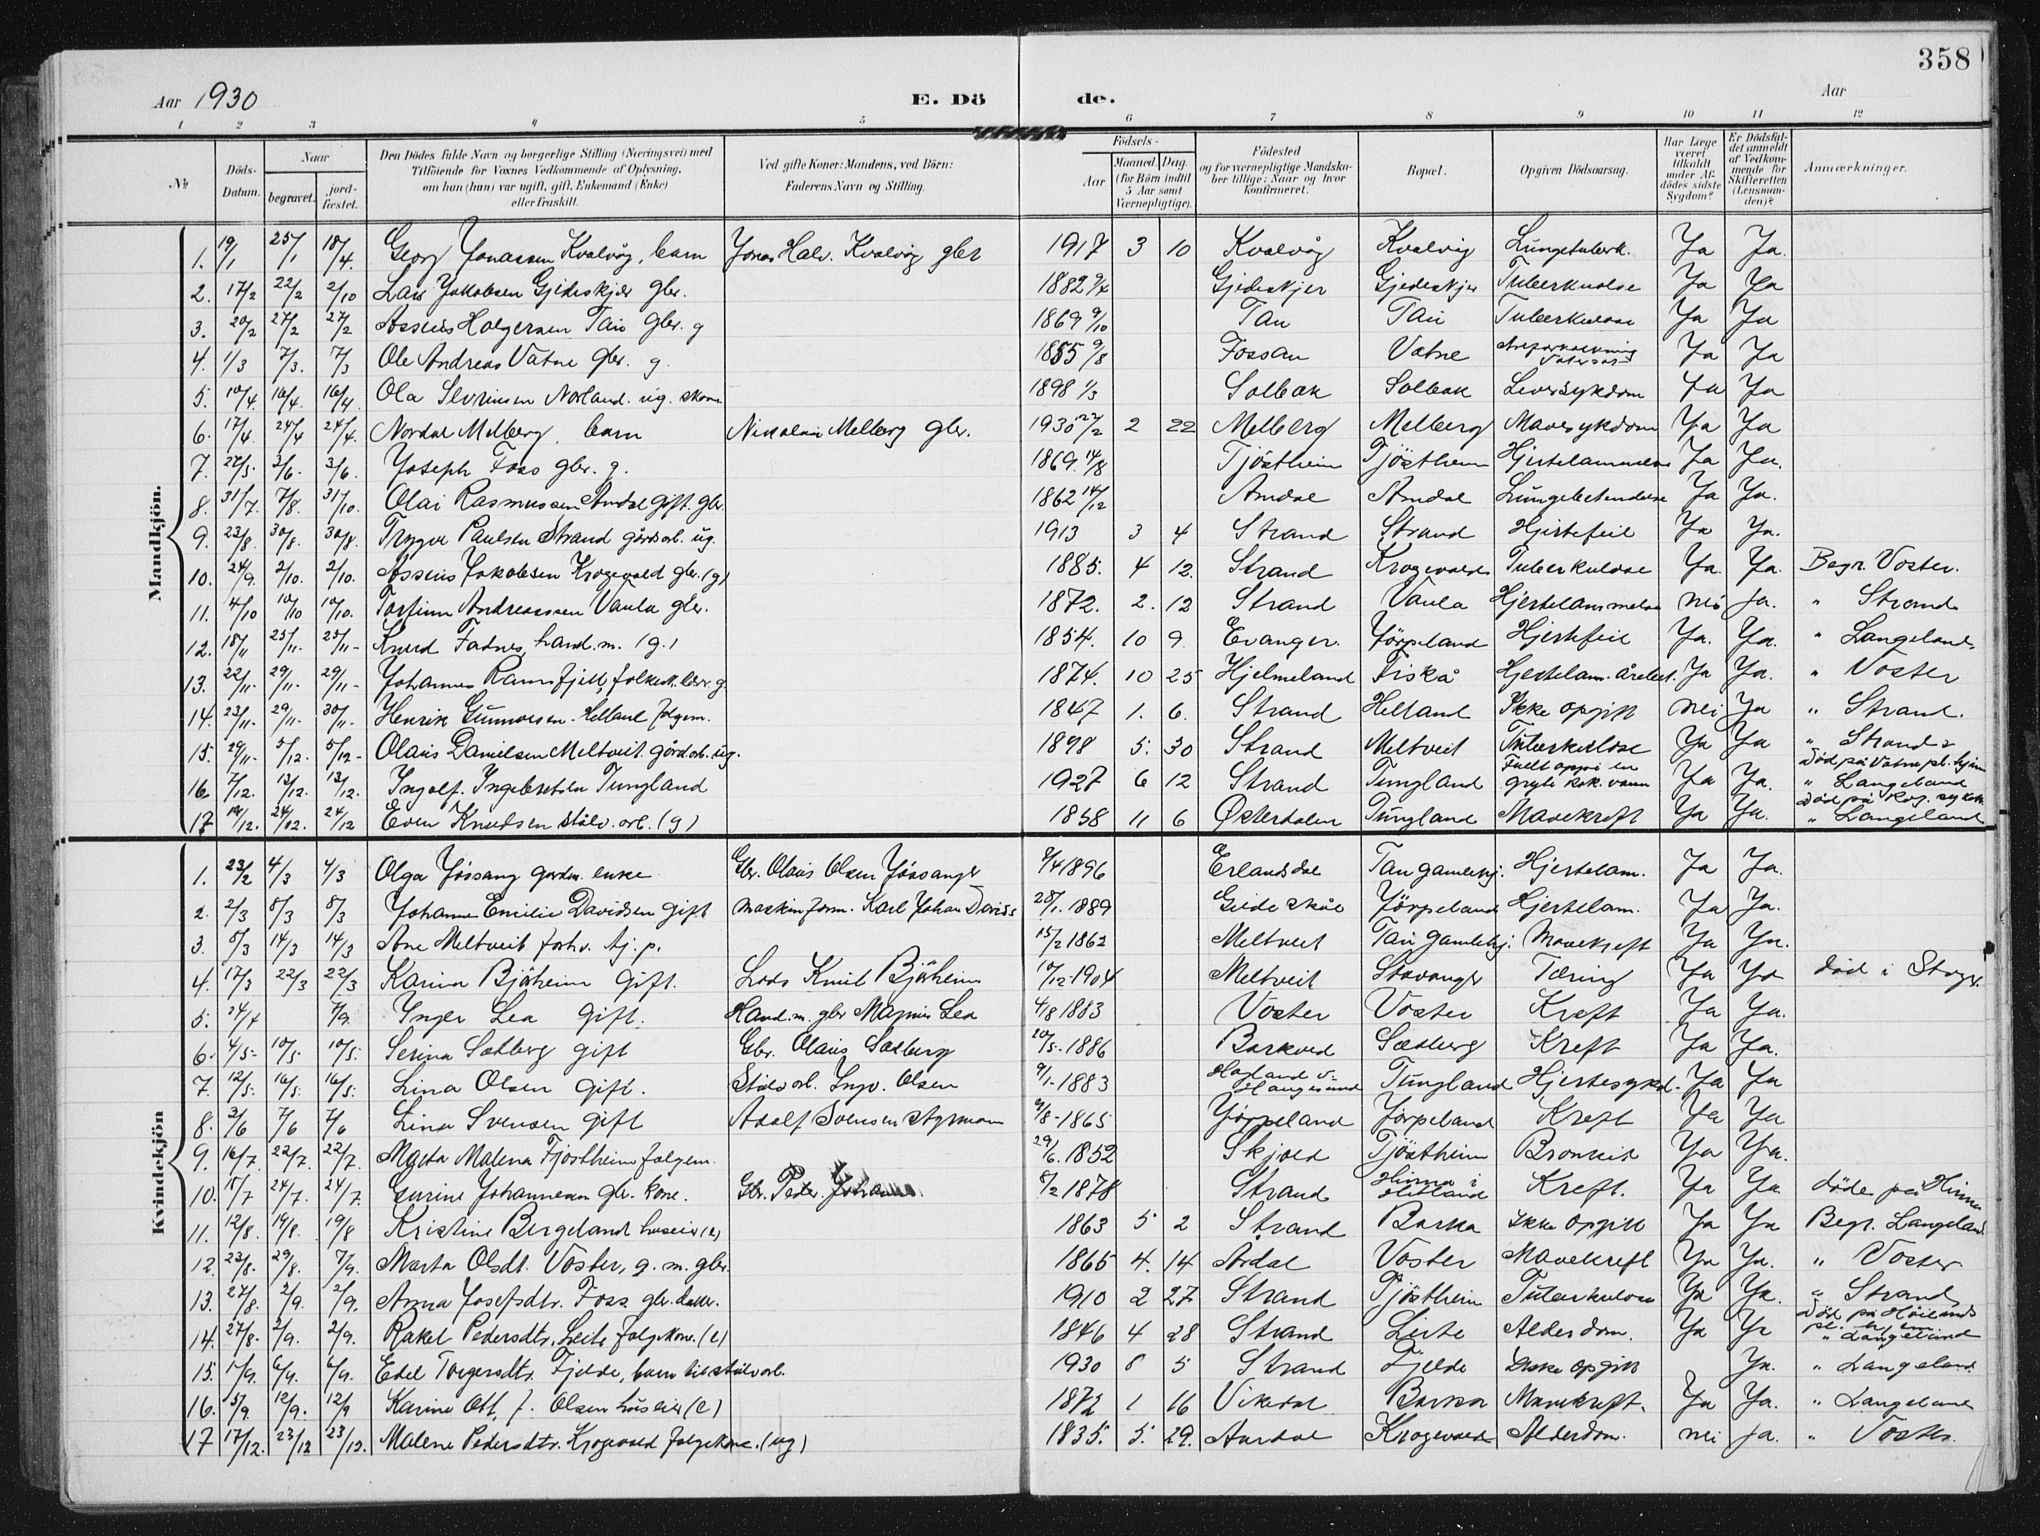 358
Aar 1930 E. Dö de. Aar
1 2 3 4 5 6 7 8 9 10 11 12
№ Döds-Datum. Naar begravet. jord-fæstet. Den Dödes fulde Navn og borgerlige Stilling (Næringsvei) med Tilföiende for Voxnes Vedkommende af Oplysning, om han (hun) var ugift, gift, Enkemand (Enke) eller fraskilt. Ved gifte Koner: Mandens, ved Börn: Faderens Navn og Stilling. Födsels- Aar Maaned. Dag. (for Börn indtil 5 Aar samt Værnepligtige). Födested og for værnepligtige Mandskaber tillige: Naar og hvor konfirmeret. Bopæl. Opgiven Dödsaarsag. Har Læge været tilkaldt under Afdödes sidste Sygdom? Er Dödsfaldet anmeldt af Vedkommende for Skifteretten (Lensmanden)? Anmærkninger.
Mandkjön.
1. 19/1 25/1 18/4. Georg Jonassen Kvalvåg, barn Jonas Halv. Kvalvåg gbr 1917 3 10 Kvalvåg Kvalvåg Lungetuberk. Ja Ja.
2. 17/2 22/2 2/10 Lars Jakobsen Gjideskjær gbr. 1882 Gjedeskjer Gjedeskjer Tuberkulose Ja Ja
3. 20/2 27/2 27/2 Assens Holgersen Tau gbr. g 1869 9/10 Tau Tau Tuberkulose Ja Ja
4. 1/3 7/3. 7/3 Ole Andreas Vatne gbr. g. 1855 9/8 Fossan Vatne Ja Ja
5. 10/4. 16/4. 16/4. Ola Severinsen Norland. ug. 1898 1/3 Solbak Solbak Leversykdom Ja Ja
6. 17/4. 24/4 24/4. Nordal Melberg, barn Nikolai Melberg gbr. 1930 22/2 2 22 Melberg Melberg Mavesykdom Ja Ja
7. 22/5. 3/6. 3/6. Joseph Foss gbr. g. 1869. 14/8 Tjöstheim Tjöstheim Hjertelammelse Ja Ja.
8. 31/7. 7/8. 31/10. Olai Rasmussen Amdal gift. gbr. 1862 14/12 Amdal Amdal Lungebetendelse Ja Ja.
9. 23/8. 30/8. 30/8. Trygve Paulsen Strand gårdsarb. ug. 1913 3 4 Strand Strand Hjertefeil Ja Ja.
10. 24/9. 2/10. 2/10. Assens Jakobsen Krogevold gbr. (g) 1885. 4 12. Strand Krogevold Tuberkulose Ja. Ja. Begr. Voster.
11. 4/10 10/10 10/10. Torfinn Andreassen Vaula gbr. 1872. 2. 12 Strand Vaula Hjertelammelse nei ja. " Strand
12. 18/11 25/11. 25/11 - Knud Fadnes, hand.m. (g.) 1854. 10 9. Evanger. Jörpeland Hjertefeil Ja. Ja. " Langeland.
13. 22/11. 29/11. 29/11 - Johannes Ramsfjell, folkesk.lær. g. 1874. 10 25 Hjelmeland Fiskå Ja Ja. " Voster
14. 23/11. 29/11. 30/11. Henrik Gunnvesen Helland folgem. 1847 1. 6. Strand Helland Ikke opgitt nei Ja " Strand.
15. 29/11. 5/12. 5/12 - Olaus Danielsen Meltveit. gårdarb. ug. 1898 5. 30 Strand Meltveit Tuberkulose Ja Ja " Strand Död på Vatne pl.hjem
16 7/12. 13/12. 13/12. Ingolf Ingebretsen Tungland 1927 6 12 Strand Tungland Faldt oppi en gryte kok. vann Ja Ja. " Langeland
17 19/12. 24/12. 24/12 Even Knudsen stålv.arb. (g) 1858 11 6 Østerdalen Tungland Mavekreft Ja Ja. Död på Rog. sykeh. " Langeland
Kvindekjön
1. 23/2 4/3 4/3 Olga Jössang gardm. enke Gbr. Olaus Olsen Jössang 9/4 1896 Erlandsdal Tau gamlehj. Hjertelam. Ja Ja.
2. 2/3 8/3 8/3 Johanne Emilie Davidsen gift maskinform. Karl Johan Davids 28/1. 1889 Gildeskål Jörpeland Hjertelam. Ja Ja.
3. 8/3 14/3 14/3 Ane Meltveit forhv. tj. p. 15/2 1862 Meltveit Tau gamlehj. Mavekreft Ja Ja.
4. 17/3 22/3 22/3 Karina Bjöheim gift. Lods Knut Bjöheim 10/12 1904 Meltveit Stavanger Tæring Ja Ja död i Stvgr.
5. 24/4 7/9. Inger Lea gift. Hand.m. gbr Magnus Lea 4/8 1883 Voster Voster Kreft Ja Ja.
6. 4/5- 10/5 10/5. Serina Sædberg gift Gbr. Olaus Sædberg 20/5. 1886 Barkved Sædberg Kreft Ja Ja.
7. 12/5. 16/5. 16/5. Lina Olsen gift. Stålv arb. Ingv. Olsen 9/1. 1883 Hogland v. Haugesund Tungland Hjertesykd. Ja Ja
8. 3/6 7/6 7/6 Lina Svensen gift Adolf Svensen styrmann 9/8- 1865 Jörpeland Jörpeland Kreft Ja Ja
9. 16/7. 22/7. 22/7. Marta Malena Tjöstheim folgem. 29/6. 1852 Skjold Tjöstheim Bronkit Ja Ja.
10. 18/7 24/7. 24/7. Gurine Johannesen gbr. kone. Gbr. Peder. Johan 8/2 1878 Strand Hinna i Hetland Kreft. Ja Ja döde på Hinna
11. 12/8. 19/8. 19/8 Kristine Bergeland huseier(e) 1863 5 2 Strand Barka Ikke opgitt Ja Ja Begr. Langeland.
12. 23/8. 29/8. 7/9. Marta Olsdt. Voster, g. m. gbr. 1865 4. 14 Årdal Voster Mavekreft Ja Ja. " Voster
13. 27/8. 2/9. 2/9. Anna Josefsdtr. Foss. gbr. datter. 1910 2 27 Strand Tjöstheim Tuberkulose Ja Ja. " Strand
14. 27/8- 2/9. 2/9. Rakel Pedersdtr. Leite folgekone. (e) 1846 4 28 Strand Leite Alderdom. Ja Ja Död på Höilands pl. hjem " Langeland
15. 1/9. 6/9. 6/9. Edel Torgersdtr. Fjelde, barn til stålv arb. 1930 8 5 Strand Fjelde Ikke opgitt Ja. " Langeland
16. 5/9. 12/9. 12/9 Karine Ott. f. Olsen huseier (e) 1872 1 16 Vikedal Barka Mavekreft. Ja Ja. " Langeland
17 17/12. 23/12 23/12. Malene Pedersdtr. Krogevold folgekone. (ug) 1835. 5. 29. Aardal Krogevold Alderdom. nei ja. " Voster.